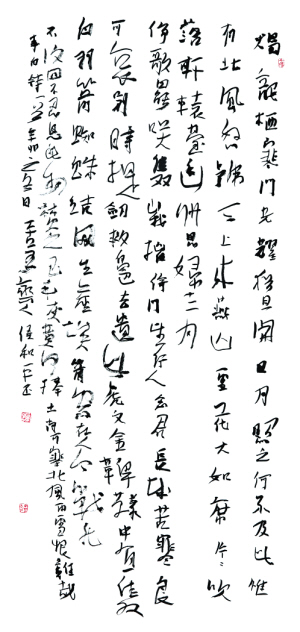 燭龍栖寒門光耀猶旦開日月照之何不及此惟
有北風怒號天上来燕山雪花大如席片々吹
落軒轅臺幽州思婦十二月
停歌罷笑雙蛾摧倚門望行人念君長城苦寒良
可哀别時提劍救邊去遺此虎文金鞞靫中有一雙
白羽箭蜘蛛結網生塵埃箭空在人今戰死
不復回不忍見此物焚之已成灰黄河捧土尚可塞北風雨雪恨難裁